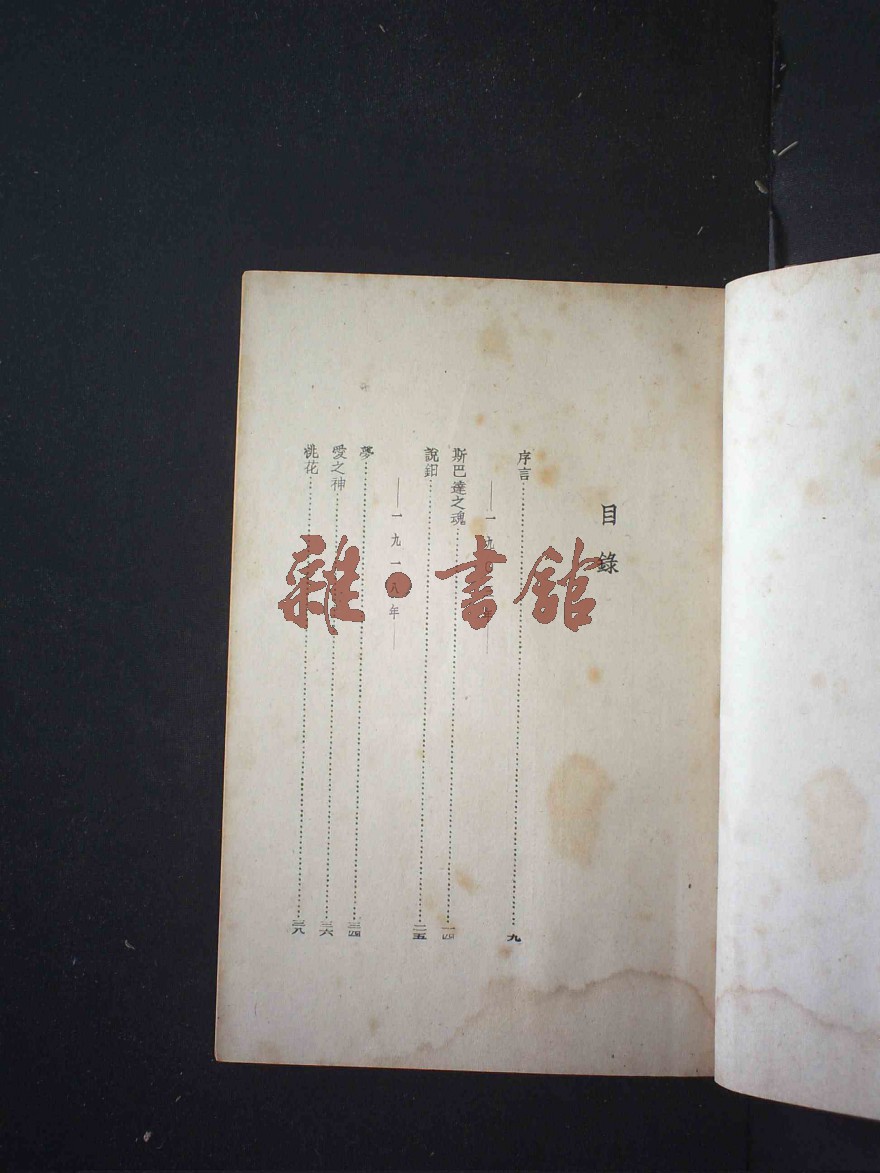 目錄
序言……九
——一九
斯巴達之魂……一四
說鈤……二五
——一九一八年——
夢……三四
愛之神……三六
桃花……三八
雜•書館